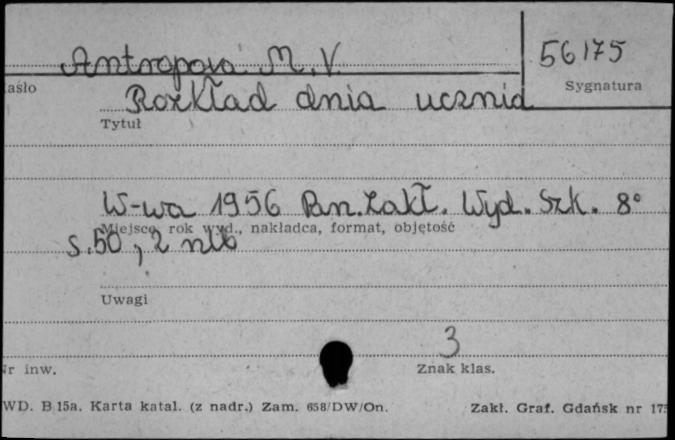 Antropova M.V.
56175
asło
Sygnatura
Rozkład dnia ucznia
Tytuł
W-wa 1956 Pan.Zakł. Wyd. Szk. 8°
Miejsce, rok wyd., nakładca, format, objętość
s.50, 2 nlb
Uwagi
3
Nr inw.
Znak klas.
WD. B 15a. Karta katal. (z nadr.) Zam. 658/DW/On.
Zakł. Graf. Gdańsk nr 175